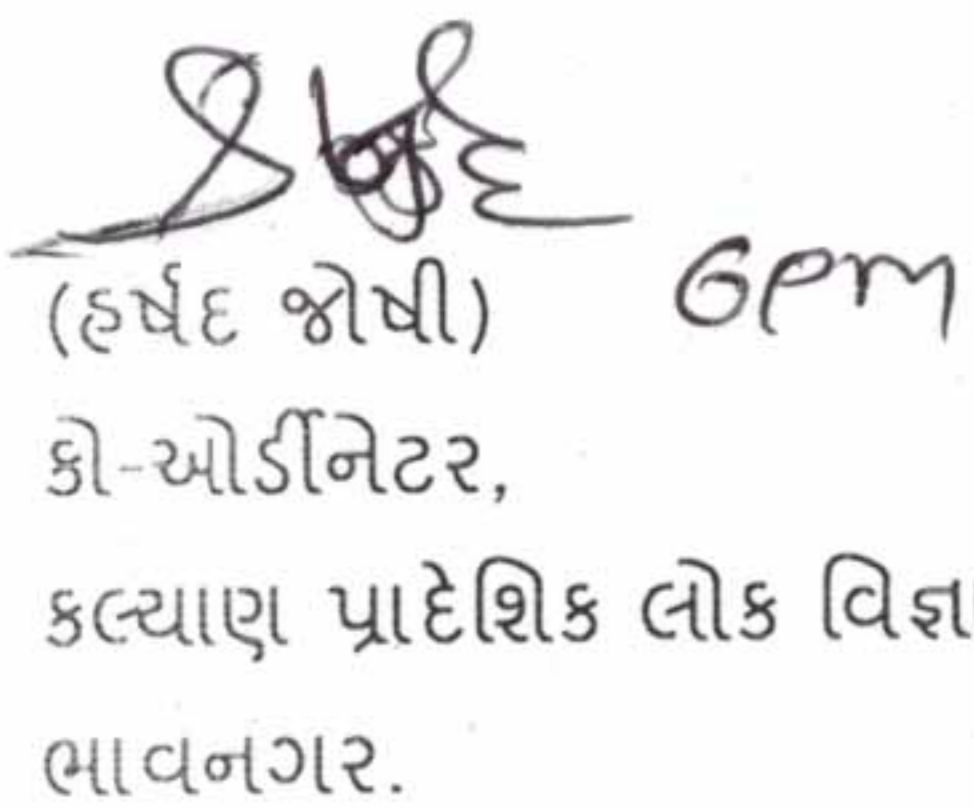 GPM
(હર્ષદ જોષી)
કો-ઓર્ડીનેટર,
કલ્યાણ પ્રાદેશિક લોક વિજ્ઞ
ભાવનગર.